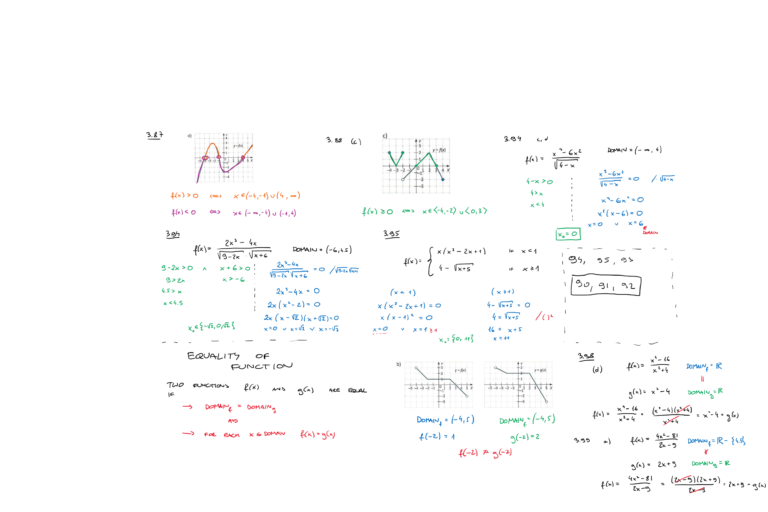 3.87
a)
y=f(x)
f(x)>0 ⟺ x∈(-4,-1)∪(4,∞)
f(x)<0 ⟺ x∈(-∞,-4)∪(-1,4)
3.88 (c)
c)
y=f(x)
f(x)≥0 ⟺ x∈⟨-4,-2⟩∪⟨0,3⟩
3.94 c,d
f(x) = x³-6x² / √(4-x)
DOMAIN = (-∞, 4)
4-x>0
4>x
x<4
x³-6x² / √(4-x) = 0 / √(4-x)
x³-6x²=0
x²(x-6)=0
x=0 ∨ x=6
∉ DOMAIN
x₀=0
3.94
f(x) = 2x³-4x / √(9-2x) √(x+6)
DOMAIN = (-6, 4.5)
9-2x>0 ∧ x+6>0
9>2x x>-6
4.5>x
x<4.5
x₀∈{-√2,0,√2}
2x³-4x / √(9-2x) √(x+6) = 0 / √(9-2x) √(x+6)
2x³-4x=0
2x(x²-2)=0
2x(x-√2)(x+√2)=0
x=0 ∨ x=√2 ∨ x=-√2
3.95
f(x) = { x(x²-2x+1) IF x<1
4-√(x+5) IF x≥1
(x<1)
x(x²-2x+1)=0
x(x-1)²=0
x=0 ∨ x=1
(x≥1)
4-√(x+5)=0
4=√(x+5) /( )²
16=x+5
x=11
x₀={0, 11}
94, 95, 93
90, 91, 92
EQUALITY OF
FUNCTION
TWO FUNCTIONS f(x) AND g(x) ARE EQUAL
IF
→ DOMAIN_f = DOMAIN_g
AND
→ FOR EACH x∈DOMAIN f(x)=g(x)
b)
y=f(x)
y=g(x)
DOMAIN_f=(-4,5)
DOMAIN_g=(-4,5)
f(-2)=1
g(-2)=2
f(-2)≠g(-2)
3.98
(d)
f(x) = x⁴-16 / x²+4
DOMAIN_f=ℝ
=
g(x)=x²-4
DOMAIN_g=ℝ
f(x) = x⁴-16 / x²+4 = (x²-4)(x²+4) / x²+4 = x²-4 = g(x)
3.99 a)
f(x) = 4x²-81 / 2x-9
DOMAIN_f=ℝ-{4.5}
≠
g(x)=2x+9
DOMAIN_g=ℝ
f(x) = 4x²-81 / 2x-9 = (2x-9)(2x+9) / 2x-9 = 2x+9=g(x)